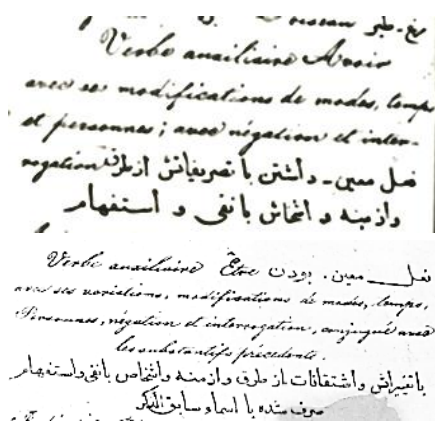 رغ - طبر
Verbe auxiliaire Avoir
avec ses modifications de modes, temps
et personnes; avec négation et inter-
rogation فعل معین - داشتن با تصریفاتش از طرق
و ازمنه و اشخاش با نفی و استفهام
Verbe auxiliaire Être فعل معین. بودن
avec ses variations, modifications de modes, temps,
Personnes, négation et interrogation, conjugué avec
les substantifs precedents.
با تغییراتش و اشتقاقات از طرق و ازمنه و اشخاص با نفی و استفهام
صرف شده با اسماء سابق الذکر